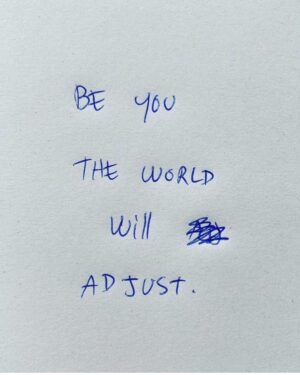 BE YOU
THE WORLD
Will
ADJUST.